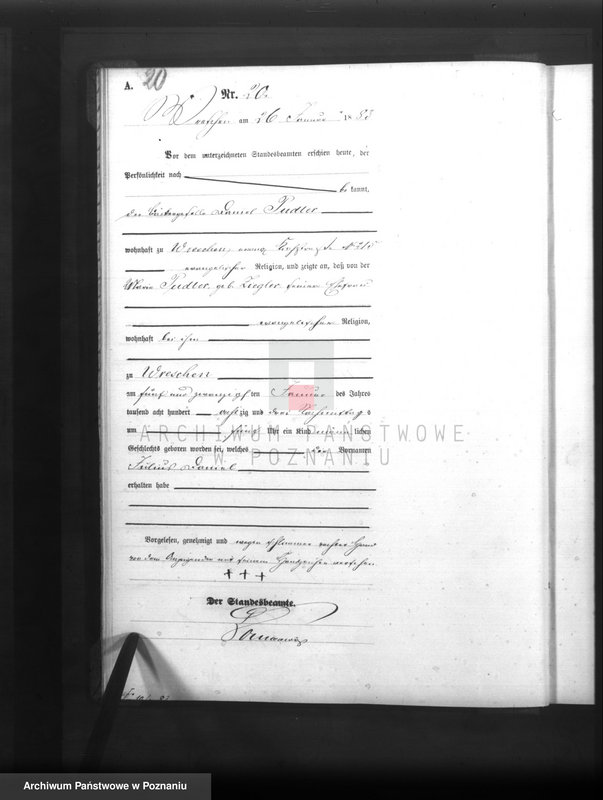 A. 20
Nr. 20.
Wreschen am 26 Januar 1883
Vor dem unterzeichneten Standesbeamten erschien heute, der
Persönlichkeit nach
be kannt,
der Daniel Pudler
wohnhaft zu Wreschen,
evangelischer Religion, und zeigte an, daß von der
Maria Pudler geb. Ziegler seiner Ehefrau
evangelischer Religion,
wohnhaft bei ihm
zu Wreschen
am fünf und zwanzigsten Januar des Jahres
tausend acht hundert achtzig und drei Nachmittags
um fünf Uhr ein Kind männlichen
Geschlechts geboren worden sei, welches die Vornamen
Julius Daniel
erhalten habe
Vorgelesen, genehmigt und wegen schlimmer rechter Hand
von dem Anzeigenden mit seinem Handzeichen versehen.
+++
Der Standesbeamte.
ARCHIWUM PAŃSTWOWE
W POZNANIU
Archiwum Państwowe w Poznaniu